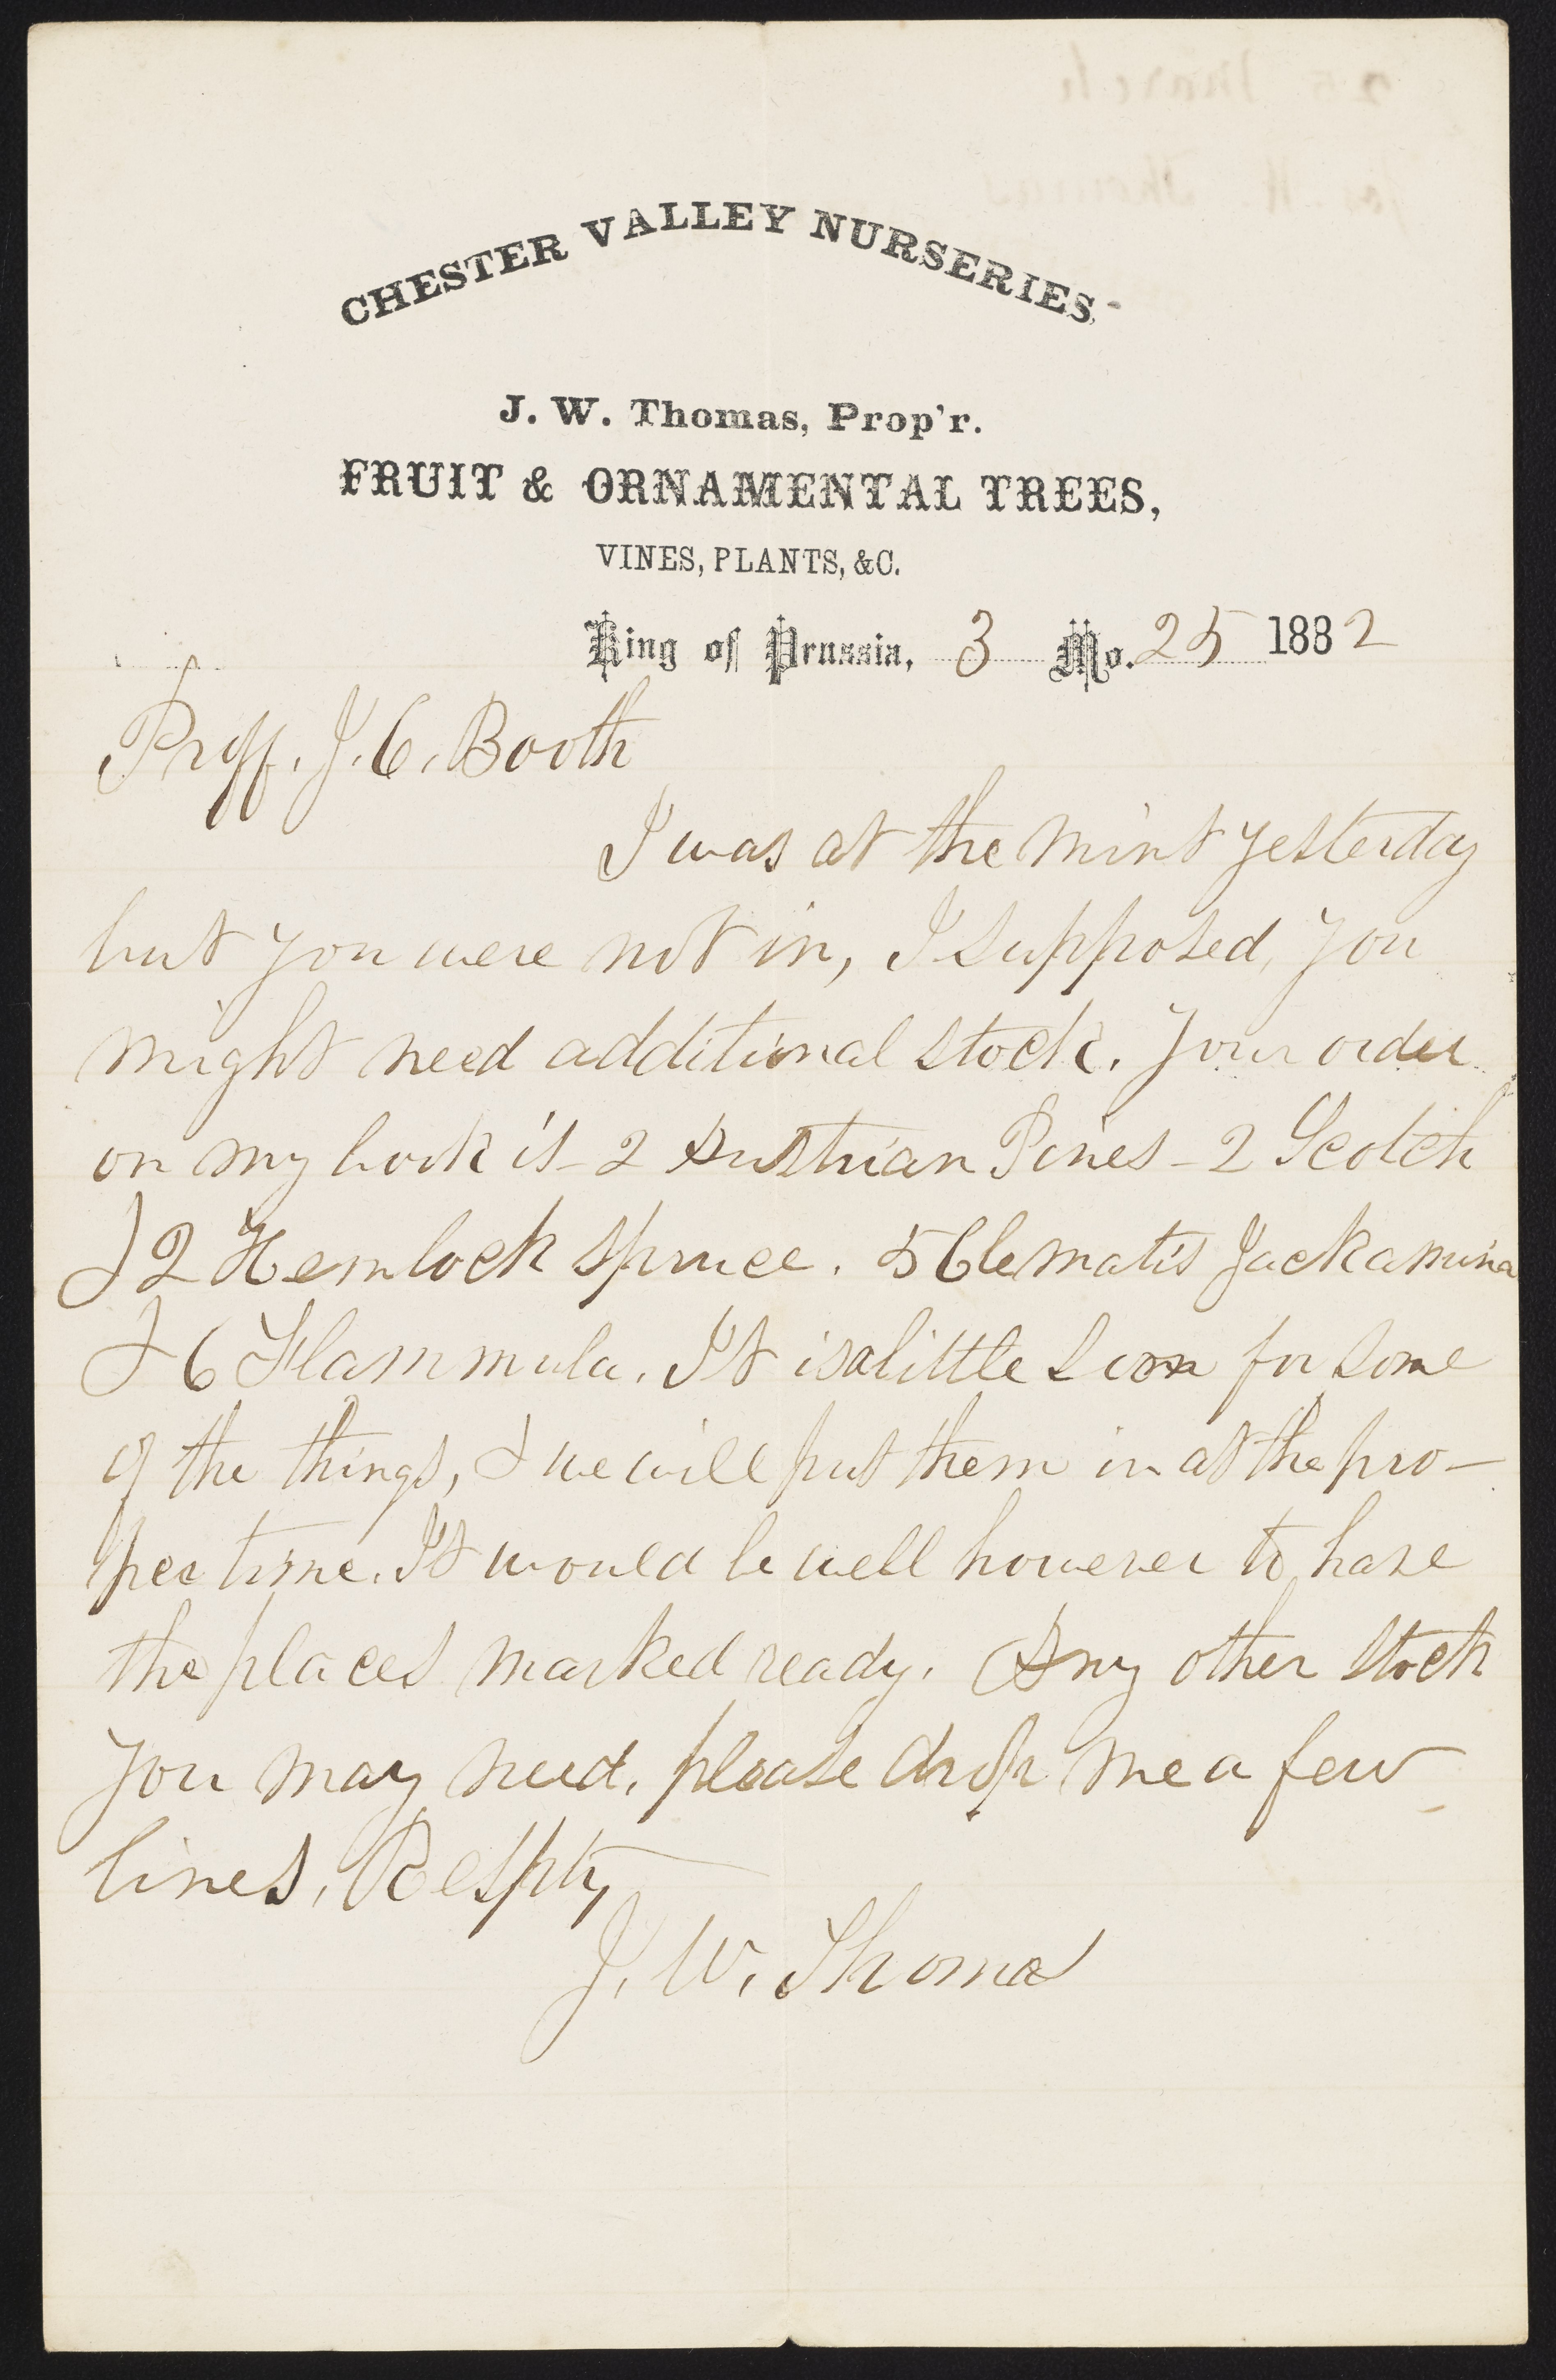 CHESTER VALLEY NURSERIES
J. W. Thomas, Prop'r.
FRUIT & ORNAMENTAL TREES,
VINES, PLANTS, &C.
King of Prussia, 3 Mo. 25 1882
Proff. J. C. Booth
I was at the mint yesterday
but you were not in, I supposed, you
might need additional stock. Your order
on my book is - 2 Austrian Pines - 2 Scotch
& 2 Hemlock spruce. 5 Clematis Jackamina
& 6 Flammula. It is a little soon for some
of the things, & we will put them in at the pro-
per time. It would be well however to have
the places marked ready. Any other stock
you may need, please drop me a few
lines, Respty
J. W. Thomas